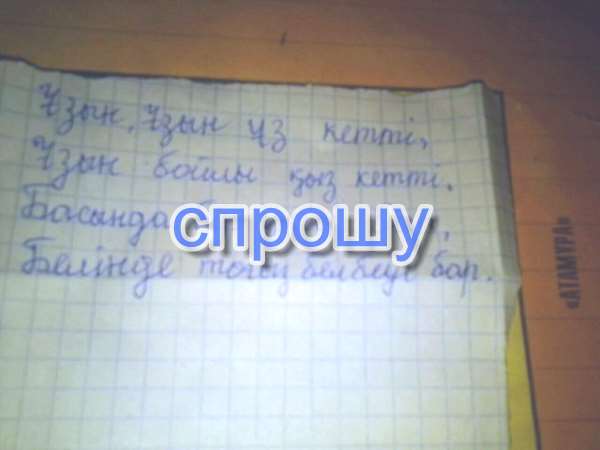 Ұзын, Ұзын үз кетті,
Ұзын бойлы қыз кетті.
Басында
спрошу
Белінде тоғыз белбеуі бар.
«АТАМҰРА»